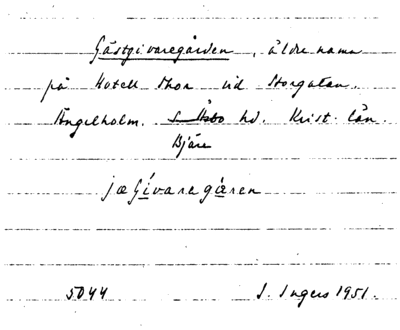 Gästgivaregården, äldre namn
på Hotell Thor vid Storgatan.
Ängelholm. S. Åsbo hd. Krist. län.
Bjäre
jæGívaregǽren
5044 I. Ingers 1951.